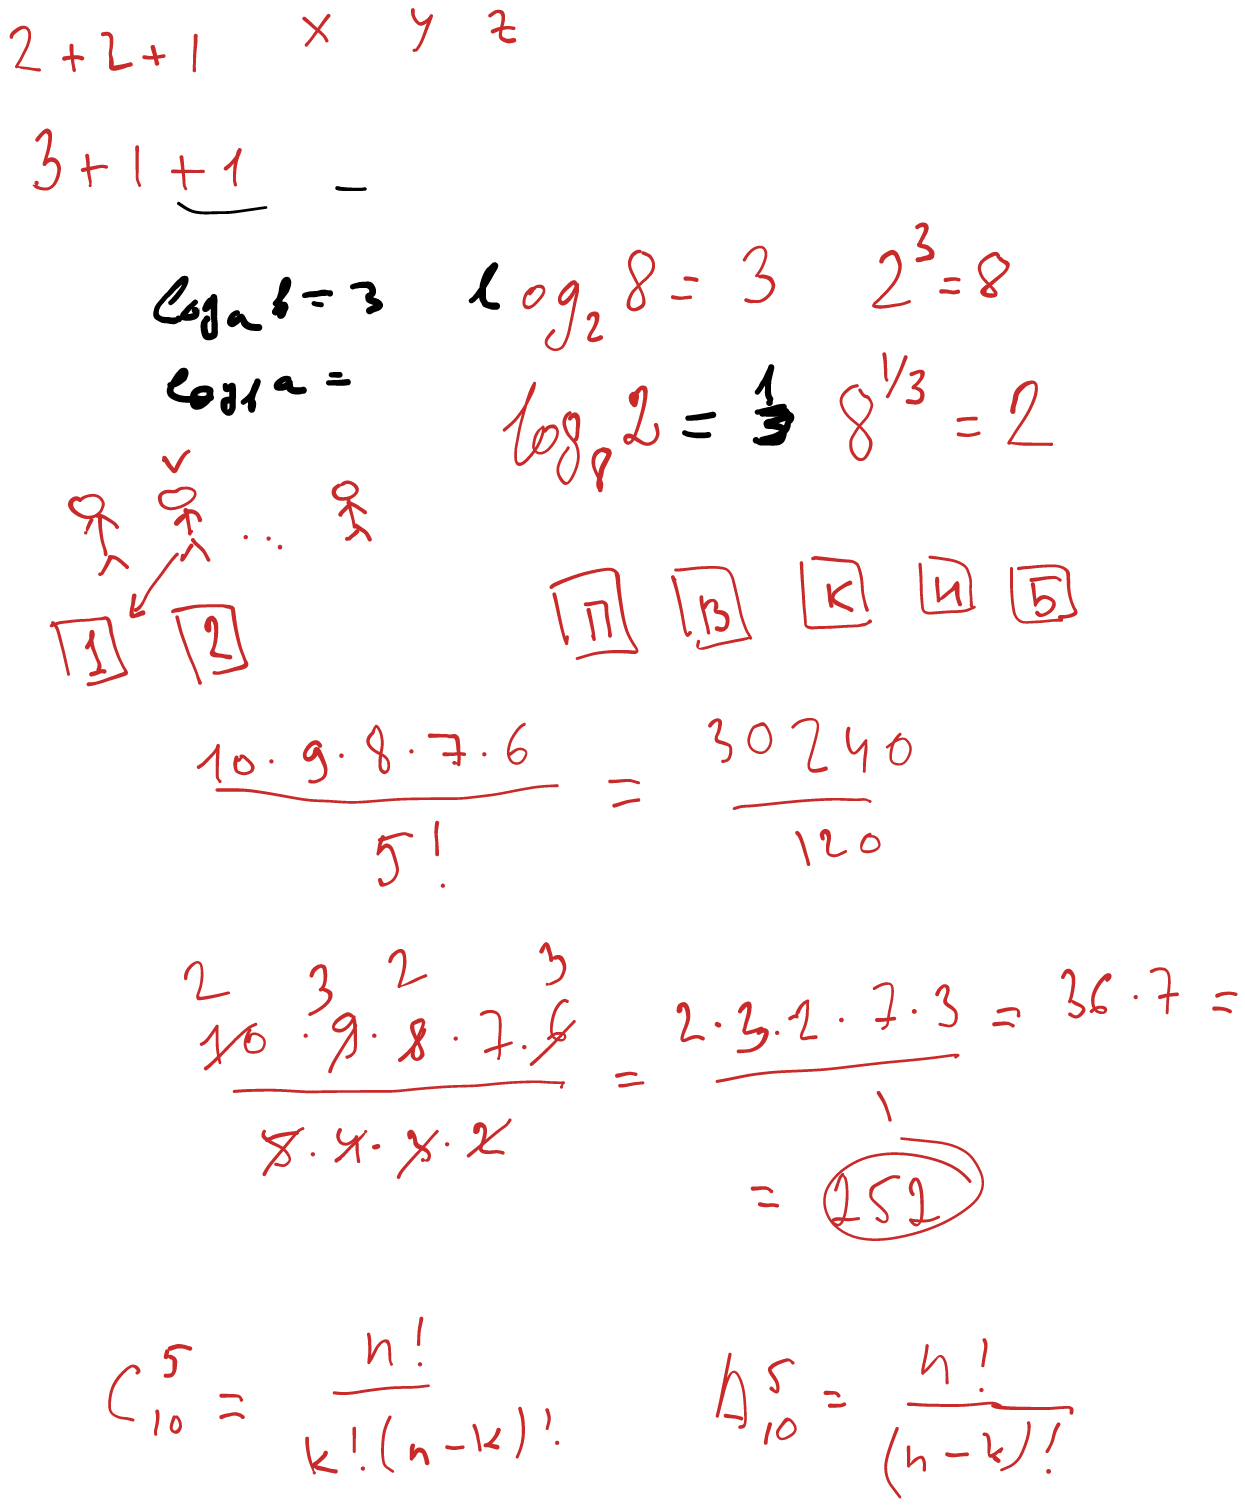 2 + 2 + 1 x y z
3 + 1 + 1 –
log_a b = 3 log_2 8 = 3 2^3 = 8
log_b a = log_8 2 = 1/3 8^{1/3} = 2
1 2 П В К И Б
10 · 9 · 8 · 7 · 6 / 5! = 30240 / 120
2 3 2 3
10 · 9 · 8 · 7 · 6 / 5 · 4 · 3 · 2 = 2 · 3 · 2 · 7 · 3 / 1 = 36 · 7 =
= 252
C_10^5 = n! / k!(n-k)! A_10^5 = n! / (n-k)!